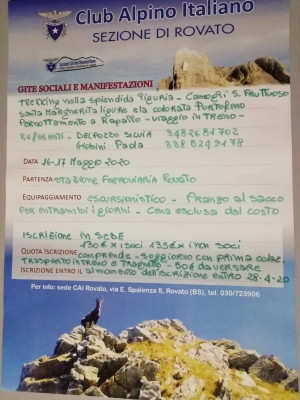 Club Alpino Italiano
SEZIONE DI ROVATO
GITE SOCIALI E MANIFESTAZIONI
TREKKING nella splendida Liguria - Camogli S. FRUTTUOSO
SANTA MARGHERITA ligure e la colorata PORTOFINO
PERNOTTAMENTO A RAPALLO - VIAGGIO in TRENO -
REFERENTI - DELPOZZO SILVIA 3482681702
Gobini Paola
DATA 16-17 MAGGIO 2020
PARTENZA STAZIONE FERROVIARIA ROVATO
EQUIPAGGIAMENTO ESCURSIONISTICO - PRANZO AL SACCO
PER ENTRAMBI i giorni - CENA ESCLUSA DAL COSTO
ISCRIZIONE IN SEDE
130€ x i soci 135€ x i non soci
QUOTA ISCRIZIONE COMPRENDE - SOGGIORNO CON PRIMA COLAZ.
TRASPORTO in TRENO e TRAGHETTO - 50€ DA VERSARE
ISCRIZIONE ENTRO IL al momento dell'iscrizione ENTRO 28-4-20
Per info: sede CAI Rovato, via E. Spalenza 8, Rovato (BS), tel. 030/723906